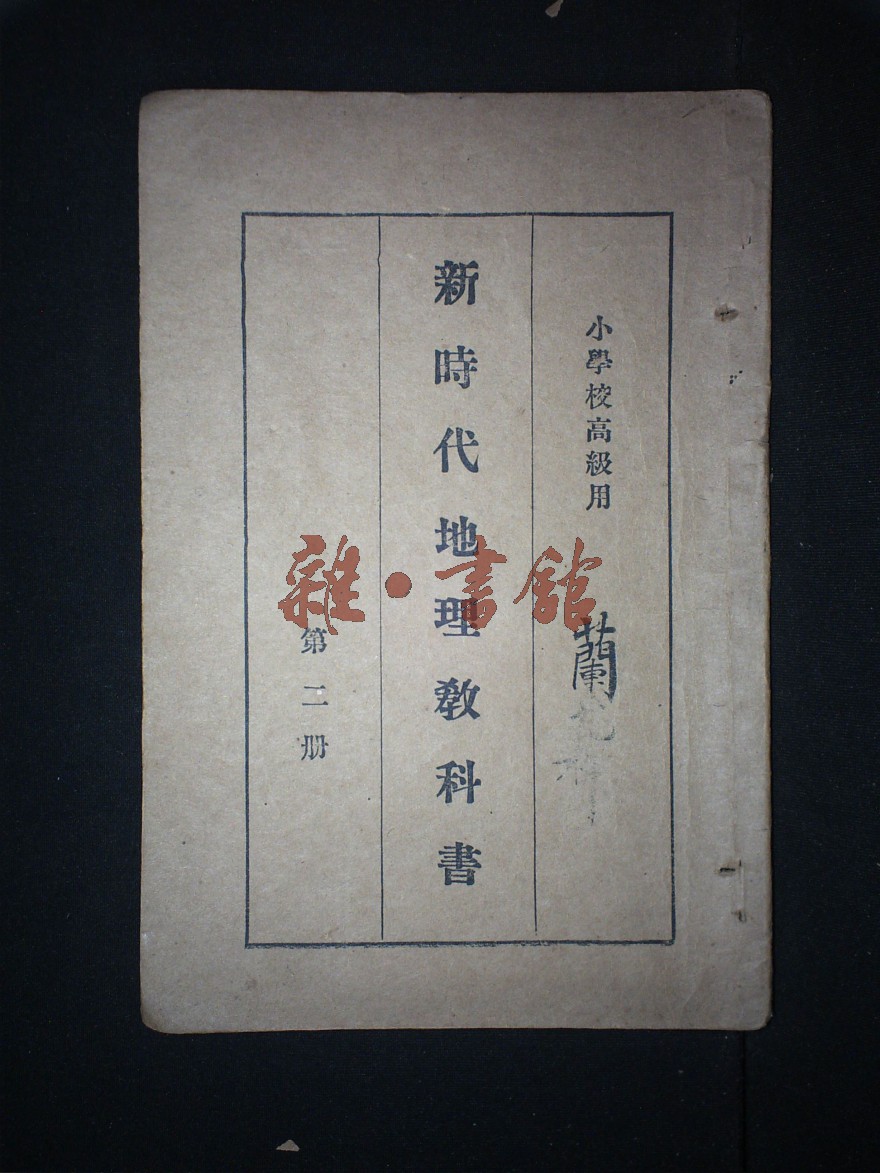 小學校高級用
蘭
新時代地理敎科書
第二册
雜·書館